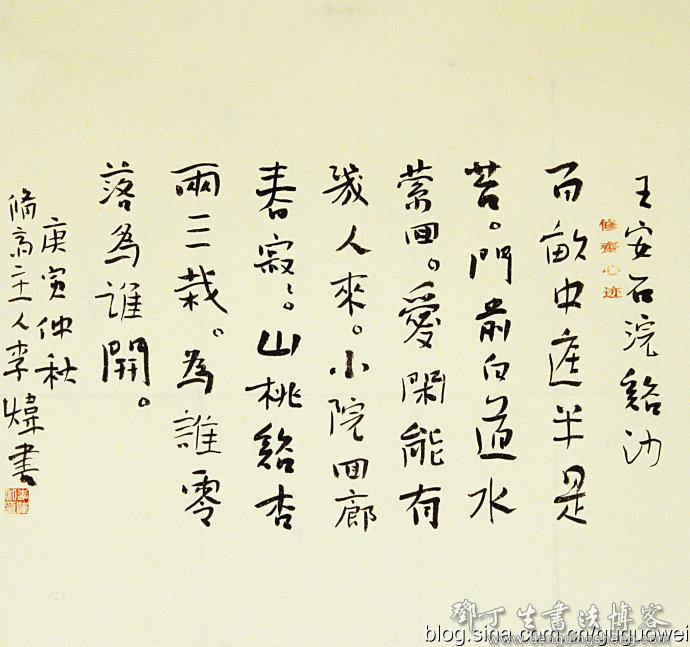 王安石浣谿沙
修齋心迹
百畝中庭半是
苔。門前白道水
縈回。愛閑能有
幾人來。小院回廊
春寂寂。山桃谿杏
兩三栽。為誰零
落為誰開。
庚寅仲秋
脩齋主人李煒書
鄧丁生書法博客
blog.sina.com.cn/qiguowei